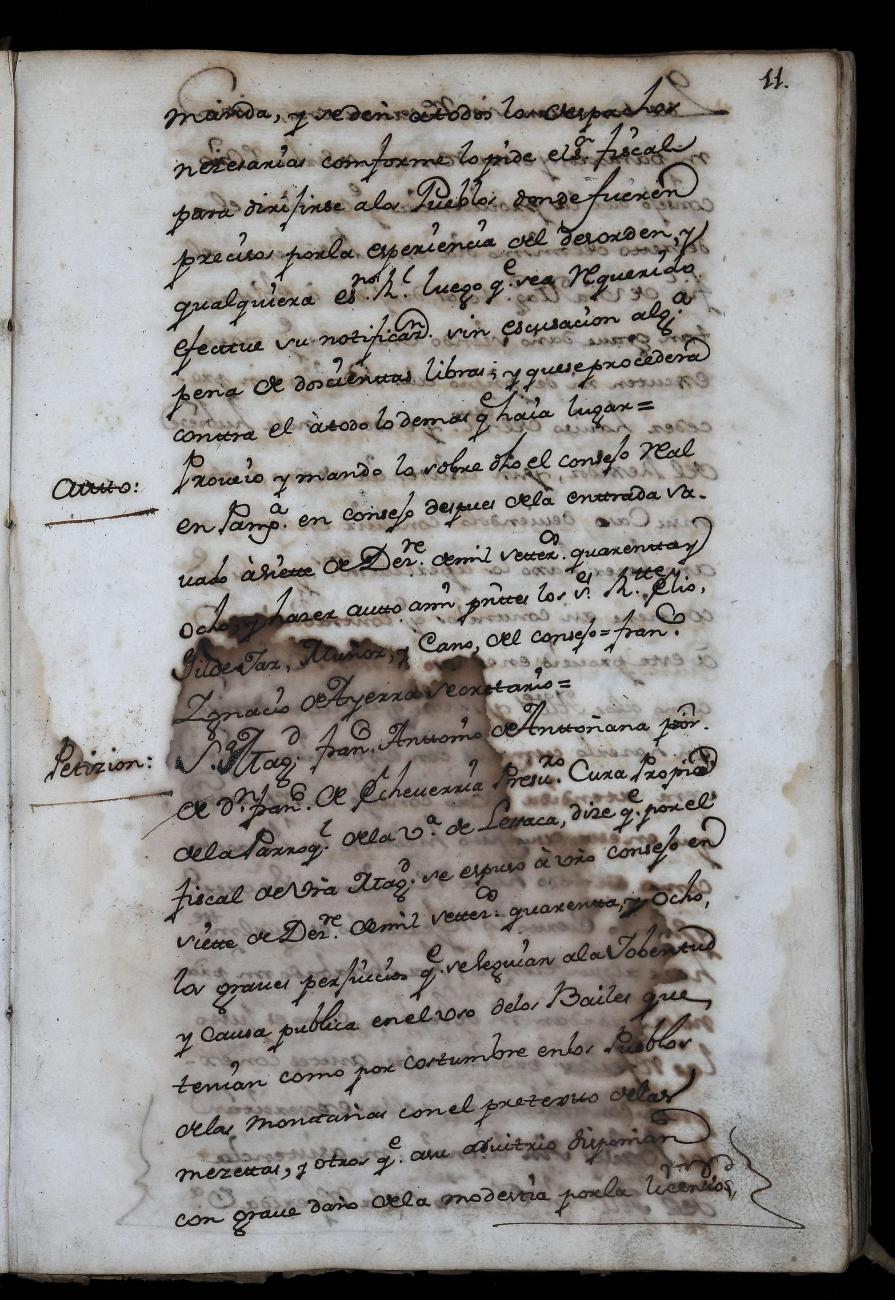 11.
manda, y se den atodos los despachos
nezesarios comforme lo pide el Sr. fiscal
para dirijirse alos Pueblos donde fueren
precisos porla esperiencia del desorden, y
qualquiera esno. Rl. luego qe. sea Requerido
efectue su notificaon. sin escusacion alga.
pena de doscienttas libras; y quese procederà
conttra el àtodo lo demas qe haia lugar=
Autto:
Proveio y mando lo sobre dho el consejo Real
en Pampa. en consejo despues dela enttrada Sa-
vado àsiette de Dere. demil setteds. quarentta y
ocho, y hazer autto ami pnttes los Ss. Rtte y Elio,
Gilde Jaz, Muñoz, y Cano, del consejo= Franco.
Ygnacio de Ayerra secretario=
Petizion:
S. M. Magd. Franco. Anttonio de Anttoñana pòr.
de Dn. Franco. de Echeverria Presvro. Cura Propio
dela Parroql. dela Va. de Lesaca, dize qe. por el
fiscal de vra Magd. se espuso à vro consejo en
siette de Dere. demil setteds. quarentta, y ocho,
los graves perjuicios qe. seseguian ala Jobentud
y Causa publica enel vso delos Bailes que
tenian como por costumbre enlos Pueblos
delas monttañas conel pretexto delas
mezettas, y otros qe. asu advitrio disponian
con grave daño dela modestia porla